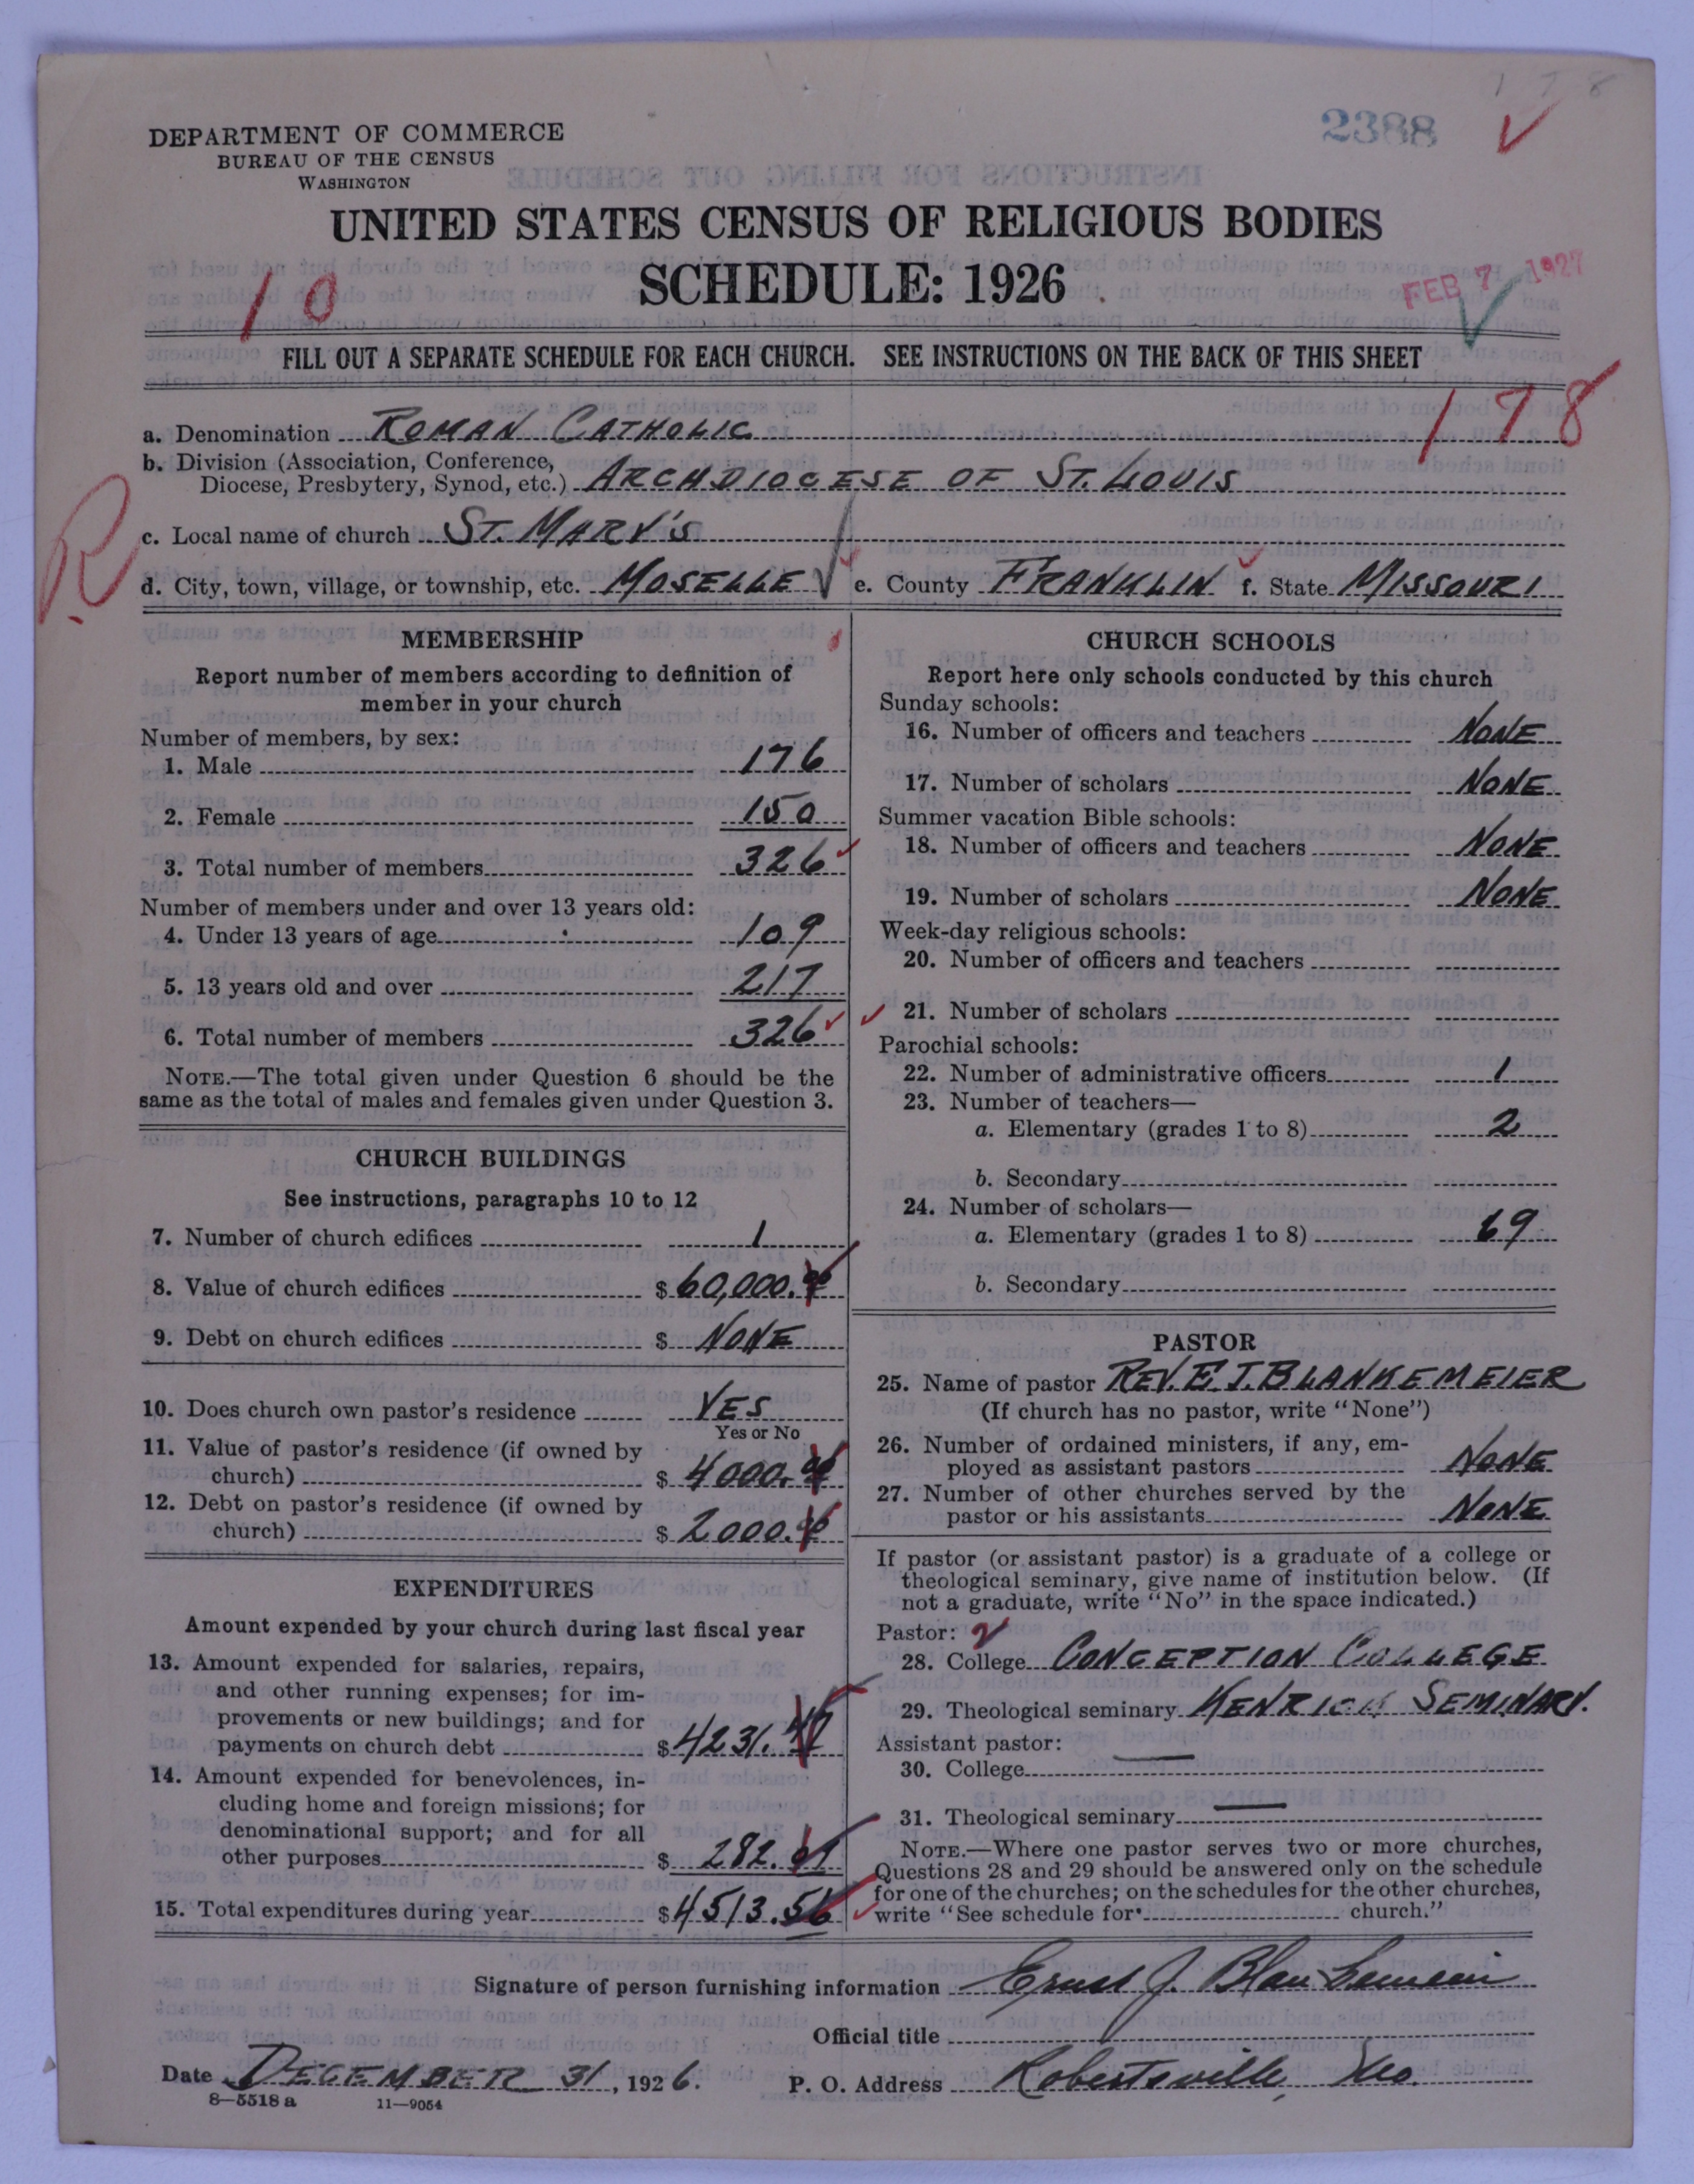 178
2388
DEPARTMENT OF COMMERCE
BUREAU OF THE CENSUS
WASHINGTON
UNITED STATES CENSUS OF RELIGIOUS BODIES
SCHEDULE: 1926
10
FEB 7 1927
FILL OUT A SEPARATE SCHEDULE FOR EACH CHURCH. SEE INSTRUCTIONS ON THE BACK OF THIS SHEET
178
a. Denomination ROMAN CATHOLIC
b. Division (Association, Conference,
Diocese, Presbytery, Synod, etc.) ARCHDIOCESE OF ST. LOUIS
R
c. Local name of church ST. MARY'S
d. City, town, village, or township, etc. MOSELLE e. County FRANKLIN f. State MISSOURI
MEMBERSHIP
Report number of members according to definition of
member in your church
Number of members, by sex:
1. Male 176
2. Female 150
3. Total number of members 326
Number of members under and over 13 years old:
4. Under 13 years of age 109
5. 13 years old and over 217
6. Total number of members 326
NOTE.—The total given under Question 6 should be the
same as the total of males and females given under Question 3.
CHURCH BUILDINGS
See instructions, paragraphs 10 to 12
7. Number of church edifices 1
8. Value of church edifices $ 60,000.00
9. Debt on church edifices $ NONE
10. Does church own pastor's residence YES
Yes or No
11. Value of pastor's residence (if owned by
church) $ 4000.00
12. Debt on pastor's residence (if owned by
church) $ 2000.00
EXPENDITURES
Amount expended by your church during last fiscal year
13. Amount expended for salaries, repairs,
and other running expenses; for im-
provements or new buildings; and for
payments on church debt $ 4231.
14. Amount expended for benevolences, in-
cluding home and foreign missions; for
denominational support; and for all
other purposes $ 282.
15. Total expenditures during year $ 4513.56
CHURCH SCHOOLS
Report here only schools conducted by this church
Sunday schools:
16. Number of officers and teachers NONE
17. Number of scholars NONE
Summer vacation Bible schools:
18. Number of officers and teachers NONE
19. Number of scholars NONE
Week-day religious schools:
20. Number of officers and teachers
21. Number of scholars
Parochial schools:
22. Number of administrative officers 1
23. Number of teachers—
a. Elementary (grades 1 to 8) 2
b. Secondary
24. Number of scholars—
a. Elementary (grades 1 to 8) 69
b. Secondary
PASTOR
25. Name of pastor REV. E. J. BLANKEMEIER
(If church has no pastor, write "None")
26. Number of ordained ministers, if any, em-
ployed as assistant pastors NONE
27. Number of other churches served by the
pastor or his assistants NONE
If pastor (or assistant pastor) is a graduate of a college or
theological seminary, give name of institution below. (If
not a graduate, write "No" in the space indicated.)
Pastor: 2
28. College CONCEPTION COLLEGE
29. Theological seminary KENRICK SEMINARY.
Assistant pastor:
30. College —
31. Theological seminary —
NOTE.—Where one pastor serves two or more churches,
Questions 28 and 29 should be answered only on the schedule
for one of the churches; on the schedules for the other churches,
write "See schedule for church."
Signature of person furnishing information Ernest J. Blankemeier
Official title
Date DECEMBER 31, 1926. P. O. Address Robertsville, Mo.
8—5518 a 11—9054